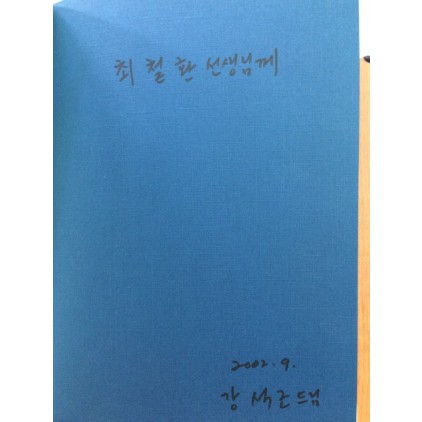 최 철 환 선생님께
2002. 9.
강 석근 드림